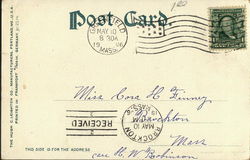 Post Card.
MAY 10
8 30A
1906
MASS.
Miss Cora H. Finney
Brockton
Mass
care H. W. Robinson
RECEIVED
BROCKTON
MAY 10
MASS.
THIS SIDE IS FOR THE ADDRESS
THE HUGH C. LEIGHTON CO., MANUFACTURERS, PORTLAND, ME., U.S.A.